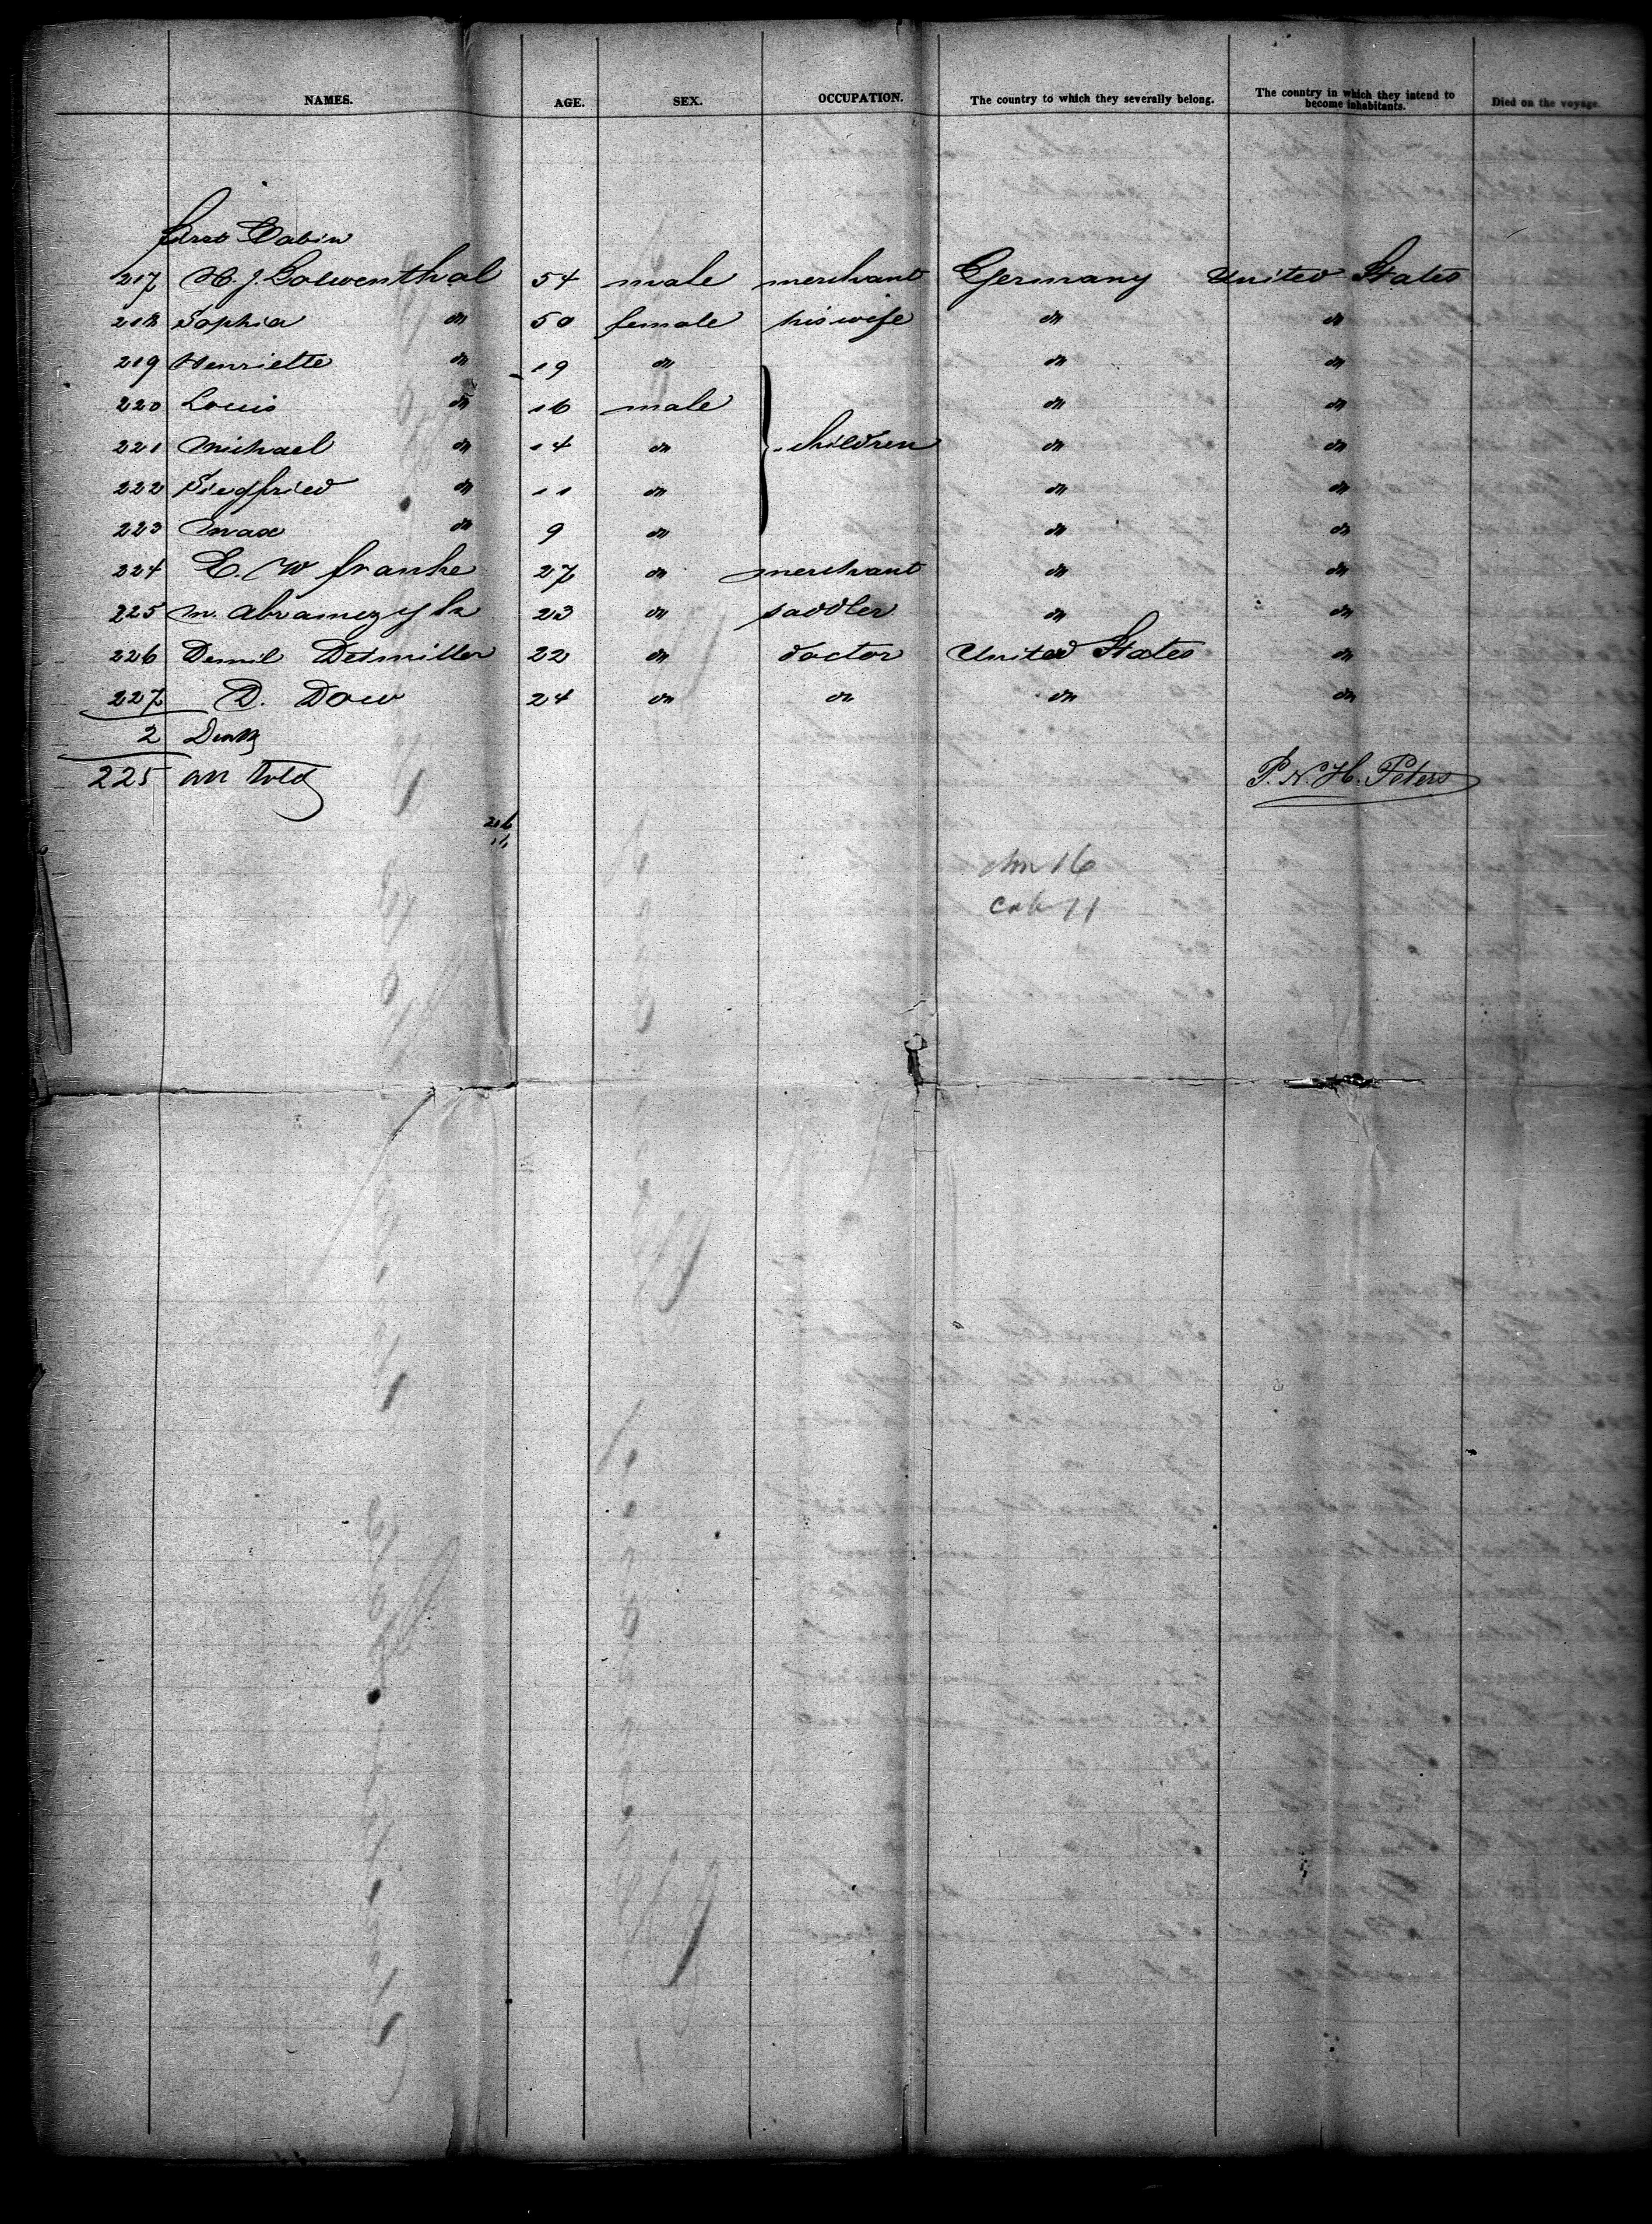 NAMES. AGE. SEX. OCCUPATION. The country to which they severally belong. The country in which they intend to become inhabitants. Died on the voyage.
First Cabin
217 H. J. Loewenthal 54 male merchant Germany United States
218 Sophia do 50 female his wife do do
219 Henriette do 19 do do do
220 Louis do 16 male do do
221 Michael do 14 do children do do
222 Siegfried do 11 do do do
223 Max do 9 do do do
224 E. W Franke 27 do merchant do do
225 M. Abramczyk 23 do saddler do do
226 22 do doctor United States do
227 D. Dow 24 do do do do
2
225 all told P. N. H. Peters
216
11
16
cab 11